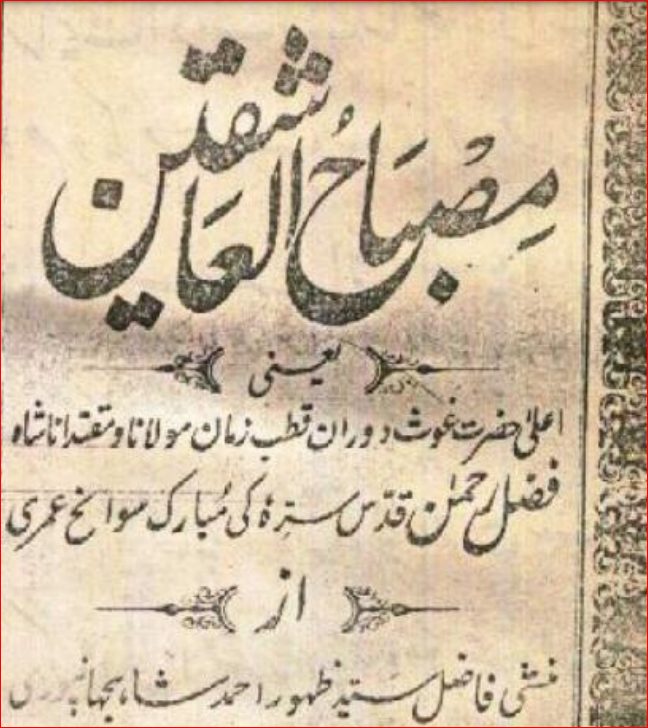 مِصْبَاحُ العَاشقین
یعنی
اعلیٰ حضرت غوث دوران قطب زمان مولانا و مقتدانا شاہ
فضل رحمٰن قدّس سرّہٗ کی مُبارک سوانح عمری
از
منشی فاضل سیّد ظہور احمد شاہجہانپوری